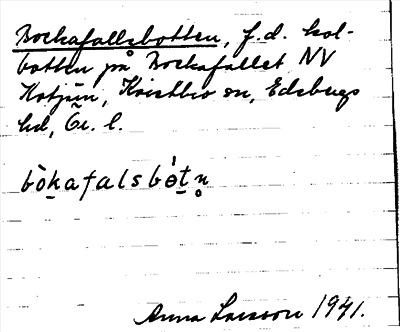 Bockafallsbotten, f.d. kol-
botten på Bockafallet NV
Hotjärn, Kvistbro sn, Edsbergs
hd, Ör. l.
bòkafalsbót̠n̥
Anna Larsson 1941.